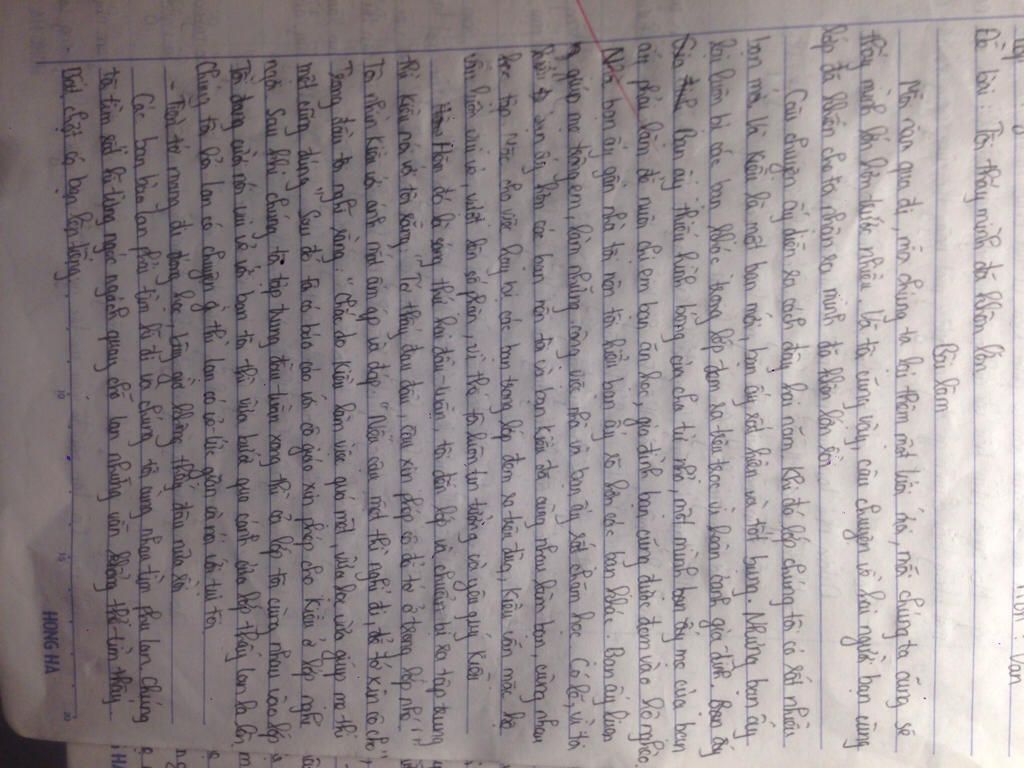 Môn: Văn
Đề bài: Tôi thấy mình đã khôn lớn
Bài làm
Mỗi năm qua đi, mỗi chúng ta lại thêm một tuổi đó, mỗi chúng ta cũng sẽ
thấy mình đã lớn trước nhiều. Và tôi cũng vậy, câu chuyện về hai người bạn cùng
lớp đã khiến cho tôi nhận ra mình đã khôn lớn hơn
Câu chuyện ấy diễn ra cách đây hai năm. Khi đó lớp chúng tôi có rất nhiều
bạn mới. Và Kiều là một bạn mới, bạn ấy rất hiền và tốt bụng. Nhưng bạn ấy
lại luôn bị các bạn khác trong lớp đem ra trêu trọc vì hoàn cảnh gia đình. Bạn ấy
Bạn ấy thiếu bóng của cha từ nhỏ, một mình bạn ấy mẹ của bạn
ấy phải làm để nuôi chị em bạn ăn học, gia đình bạn cũng được đưa vào sổ nghèo.
Nhà bạn ấy gần nhà tôi nên tôi hiểu bạn ấy rõ hơn các bạn khác. bạn ấy luôn
giúp mẹ trông em, làm những công việc nhà và bạn ấy rất chăm học. Có lẽ, vì tôi
bạn ấy hơn các bạn nên tôi và bạn Kiều đã cùng nhau làm bạn, cùng nhau
học tập. Mặc cho việc hay bị các bạn trong lớp đem ra trêu đùa, Kiều vẫn mặc kệ
vẫn luôn vui vẻ, vượt lên số phận, vì thế tôi luôn tin tưởng và yêu quý Kiều
Hôm đó là sáng thứ hai đầu tuần tôi đến lớp và chuẩn bị ra tập trung
thì Kiều nói với tôi rằng: "Tớ thấy đau đầu cậu xin phép cô để tớ ở trong lớp nhé"
Tôi nhìn Kiều với ánh mắt ấm áp và đáp: "Nếu cậu mệt thì nghỉ đi, để tớ xin cô cho"
Trong đầu tôi nghĩ rằng: "Chắc do Kiều làm việc quá mệt, vừa học vừa giúp mẹ thì
mệt cũng đúng". Sau đó tôi có báo cáo với cô giáo xin phép cho Kiều ở lớp nghỉ
ngơi. Sau khi chúng tôi tập trung đầu tuần xong thì cả lớp tôi cùng nhau vào lớp
Tôi đang cười nói vui vẻ với bạn tôi thì vừa bước qua cánh cửa lớp thấy Lan la lên,
chúng tôi hỏi Lan có chuyện gì thì Lan có vẻ tức giận và nói với tụi tớ
- Tiền tớ mang đi đóng học, bây giờ không thấy đâu nữa rồi
Các bạn bảo Lan phải tìm kĩ đi và chúng tôi cùng nhau tìm phụ Lan chúng
tôi tìm rất kĩ từng ngóc ngách quay chỗ Lan nhưng vẫn không thể tìm thấy
Bất chợt có bạn lên tiếng
HONG HA
10
15
20